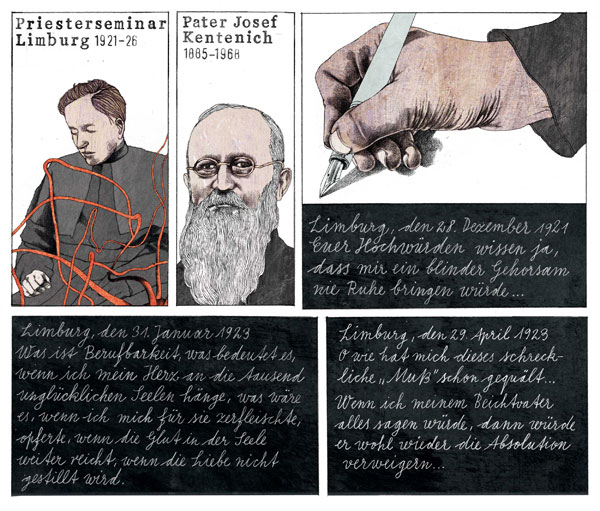 Priesterseminar
Limburg 1921-26
Pater Josef
Kentenich
1885-1968
Limburg, den 28. Dezember 1921
Euer Hochwürden wissen ja,
dass mir ein blinder Gehorsam
nie Ruhe bringen würde...
Limburg, den 31. Januar 1923
Was ist Berufbarkeit, was bedeutet es,
wenn ich mein Herz an die tausend
unglücklichen Seelen hänge, was wäre
es, wenn ich mich für sie zerfleischte,
opferte, wenn die Glut in der Seele
weiter reicht, wenn die Liebe nicht
gestillt wird.
Limburg, den 29. April 1923
O wie hat mich dieses schreck-
liche „Muß" schon gequält...
Wenn ich meinem Beichtvater
alles sagen würde, dann würde
er wohl wieder die Absolution
verweigern...